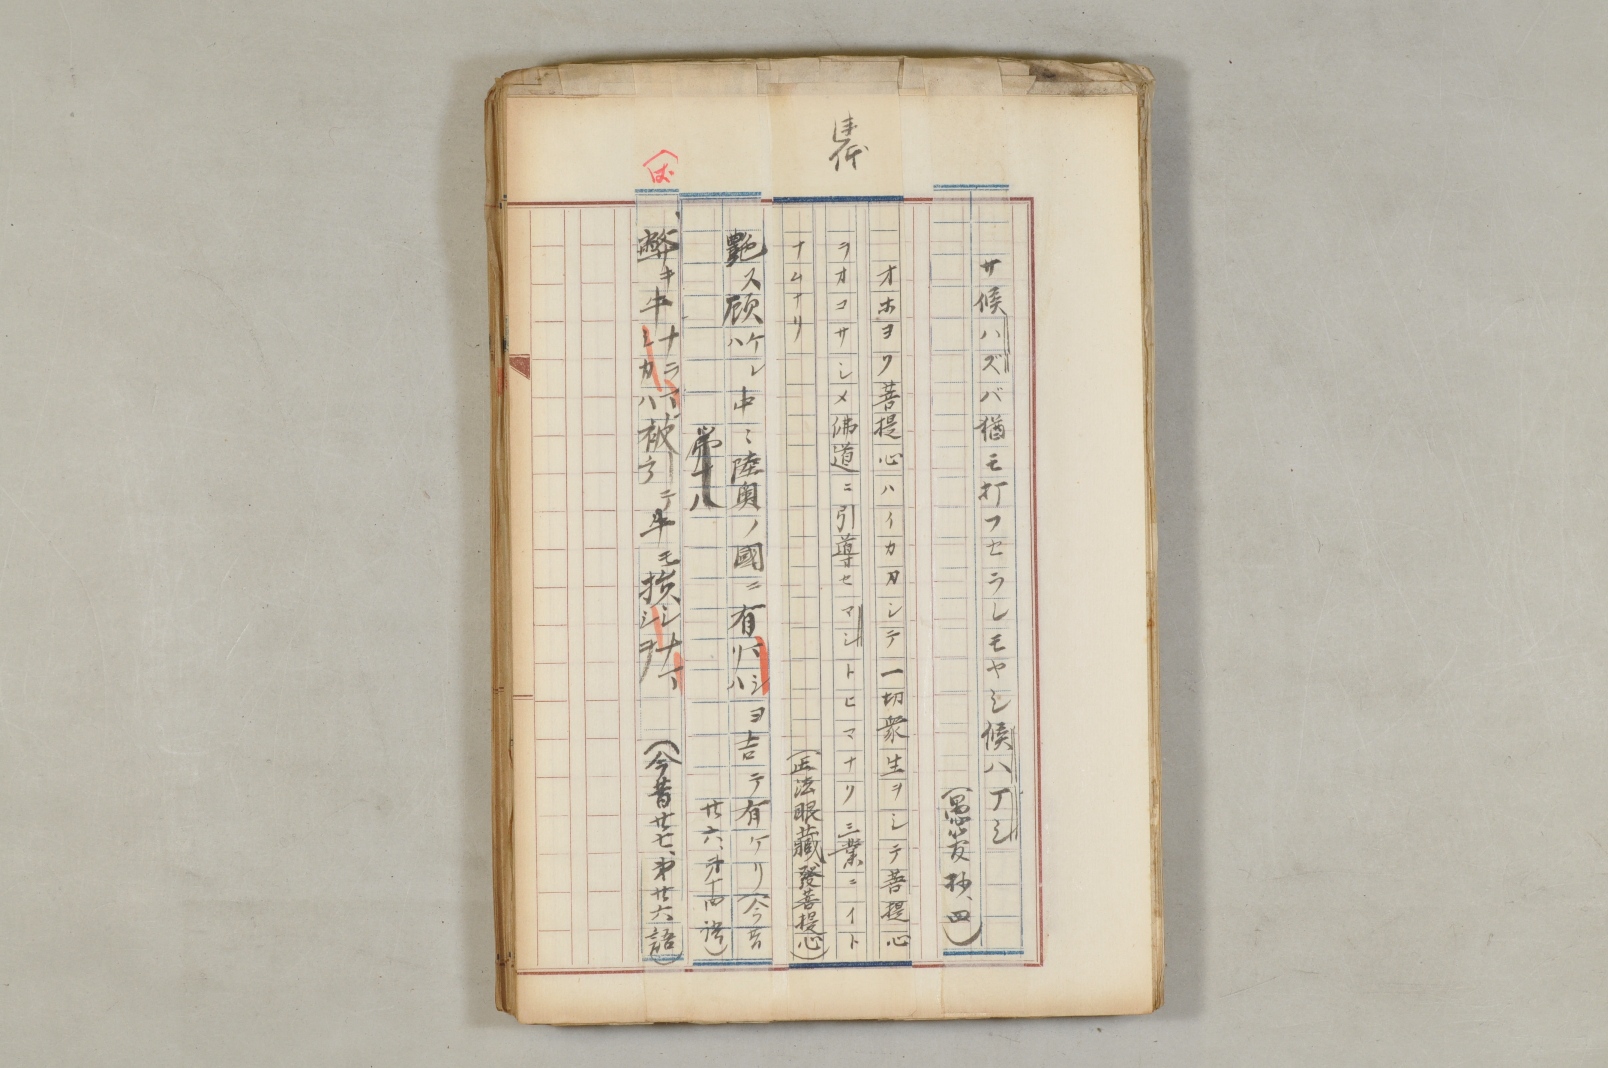 サ候ハズバ猶モ打フセラレモヤシ候ハマシ
(愚管抄、四)
オホヨソ菩提心ハイカガシテ一切衆生ヲシテ菩提心
ラオコサシメ佛道ニ引導セマシトヒマナリ三業ニイト
ナムナリ
艶ス顔ハケレ中ミ陸奥ノ國ニ有リハマシヨ吉テ有ケリ(今昔
廿六、第十四語)
第十八
弊キ牛ナラマシカハ被テ牛モ損シナマシヲ
(今昔廿七、第廿六語)
(正法眼藏、發菩提心)
(ば